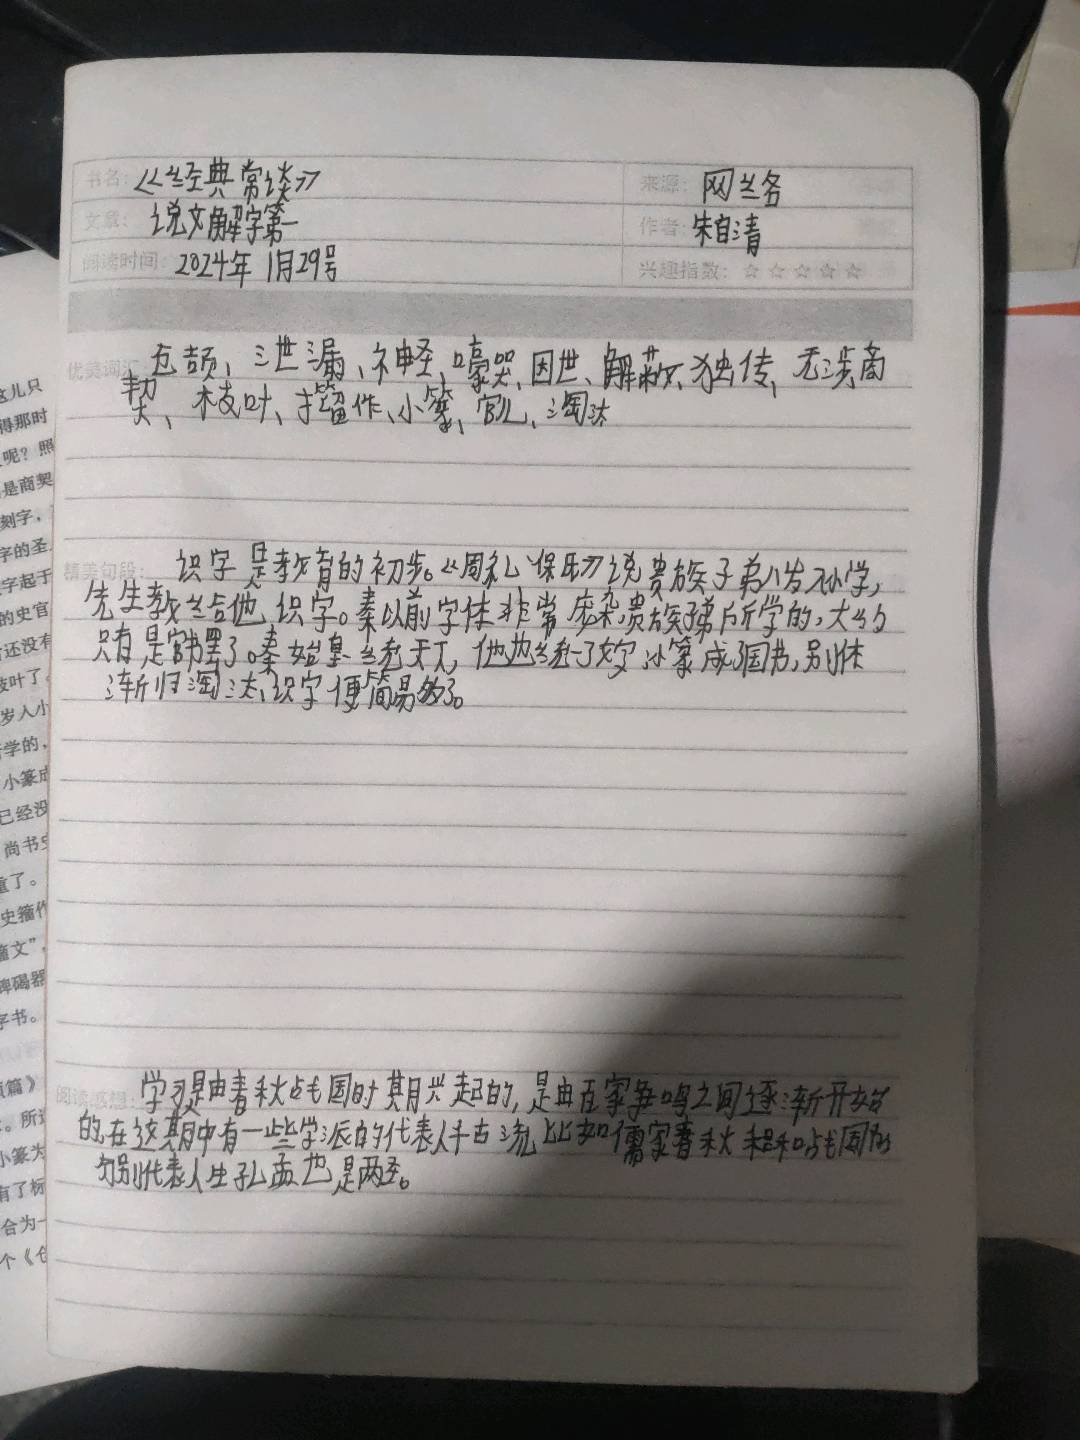 这儿只
得那时
呢？照
是商契
刻字，
字的圣
字起于
的史官
还没有
枝叶了。
岁入小
学的，
小篆成
已经没
尚书史
重了。
史籀作
籀文”，
碑碣器
字书。
篇》
。所
小篆为
有了标
合为一
个《仓
书名：《经典常谈》 来源：网络
文章：说文解字第一 作者：朱自清
阅读时间：2024年1月29号 兴趣指数：☆☆☆☆☆
优美词汇：、泄漏、神圣、嚎哭、因世、解散、独传、无涉、商
契、枝叶、擂作、小篆、官儿、淘汰
精美句段：识字是教育的初步。《周礼·保氏》说贵族子弟八岁入小学，
先生教给他识字。秦以前字体非常庞杂，贵族子弟所学的，大约
只有是官书罢了。秦始皇统天下，他也统一了文字小篆成了国书，别体
渐归淘汰，识字便简易多了。
阅读感想：学习是由春秋战国时期兴起的，是由百家争鸣之间逐渐开始
的，在这期中有一些学派的代表人千古流比如儒家春秋和战国的
分别代表人生孔孟也是两圣。